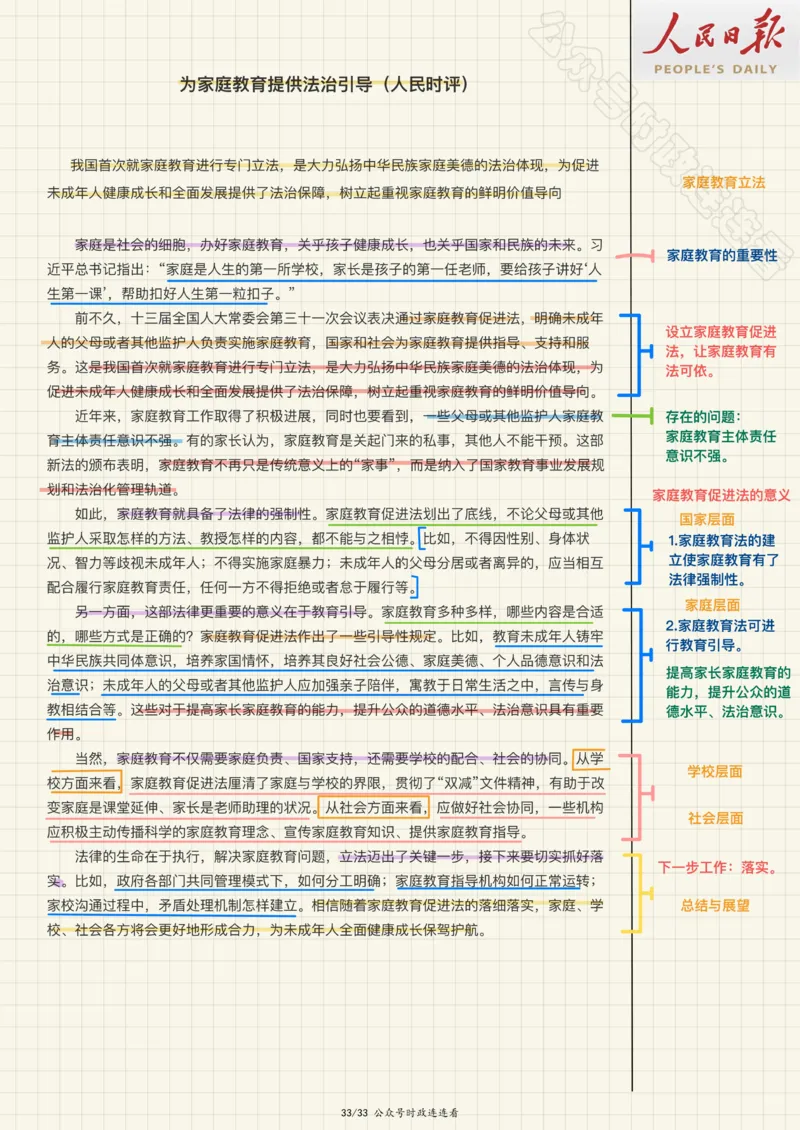 人民日报
PEOPLE'S DAILY
公众号时政连连看
为家庭教育提供法治引导（人民时评）
我国首次就家庭教育进行专门立法，是大力弘扬中华民族家庭美德的法治体现，为促进
未成年人健康成长和全面发展提供了法治保障，树立起重视家庭教育的鲜明价值导向
家庭教育立法
家庭是社会的细胞，办好家庭教育，关乎孩子健康成长，也关乎国家和民族的未来。习
近平总书记指出：“家庭是人生的第一所学校，家长是孩子的第一任老师，要给孩子讲好‘人
生第一课’，帮助扣好人生第一粒扣子。”
家庭教育的重要性
前不久，十三届全国人大常委会第三十一次会议表决通过家庭教育促进法，明确未成年
人的父母或者其他监护人负责实施家庭教育，国家和社会为家庭教育提供指导、支持和服
务。这是我国首次就家庭教育进行专门立法，是大力弘扬中华民族家庭美德的法治体现，为
促进未成年人健康成长和全面发展提供了法治保障，树立起重视家庭教育的鲜明价值导向。
设立家庭教育促进
法，让家庭教育有
法可依。
近年来，家庭教育工作取得了积极进展，同时也要看到，一些父母或其他监护人家庭教
育主体责任意识不强。有的家长认为，家庭教育是关起门来的私事，其他人不能干预。这部
新法的颁布表明，家庭教育不再只是传统意义上的“家事”，而是纳入了国家教育事业发展规
划和法治化管理轨道。
存在的问题：
家庭教育主体责任
意识不强。
家庭教育促进法的意义
如此，家庭教育就具备了法律的强制性。家庭教育促进法划出了底线，不论父母或其他
监护人采取怎样的方法、教授怎样的内容，都不能与之相悖。比如，不得因性别、身体状
况、智力等歧视未成年人；不得实施家庭暴力；未成年人的父母分居或者离异的，应当相互
配合履行家庭教育责任，任何一方不得拒绝或者怠于履行等。
国家层面
1.家庭教育法的建
立使家庭教育有了
法律强制性。
另一方面，这部法律更重要的意义在于教育引导。家庭教育多种多样，哪些内容是合适
的，哪些方式是正确的？家庭教育促进法作出了一些引导性规定。比如，教育未成年人铸牢
中华民族共同体意识，培养家国情怀，培养其良好社会公德、家庭美德、个人品德意识和法
治意识；未成年人的父母或者其他监护人应加强亲子陪伴，寓教于日常生活之中，言传与身
教相结合等。这些对于提高家长家庭教育的能力，提升公众的道德水平、法治意识具有重要
作用。
家庭层面
2.家庭教育法可进
行教育引导。
提高家长家庭教育的
能力，提升公众的道
德水平、法治意识。
当然，家庭教育不仅需要家庭负责、国家支持，还需要学校的配合、社会的协同。从学
校方面来看，家庭教育促进法厘清了家庭与学校的界限，贯彻了“双减”文件精神，有助于改
变家庭是课堂延伸、家长是老师助理的状况。从社会方面来看，应做好社会协同，一些机构
应积极主动传播科学的家庭教育理念、宣传家庭教育知识、提供家庭教育指导。
学校层面
社会层面
法律的生命在于执行，解决家庭教育问题，立法迈出了关键一步，接下来要切实抓好落
实。比如，政府各部门共同管理模式下，如何分工明确；家庭教育指导机构如何正常运转；
家校沟通过程中，矛盾处理机制怎样建立。相信随着家庭教育促进法的落细落实，家庭、学
校、社会各方将会更好地形成合力，为未成年人全面健康成长保驾护航。
下一步工作：落实。
总结与展望
33/33 公众号时政连连看